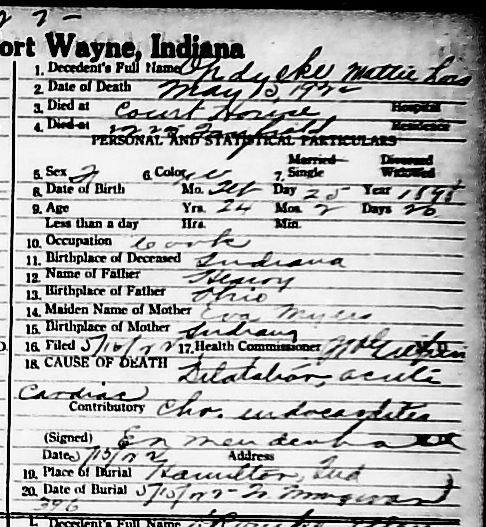 ort Wayne, Indiana
1. Decedent's Full Name Opdycke Mattie Lois
2. Date of Death May 15, 1922
3. Died at Court House Hospital
4. Died at Fairfield Residence
PERSONAL AND STATISTICAL PARTICULARS
Married Divorced
5. Sex F 6. Color W 7. Single Widowed
8. Date of Birth Mo. Feb Day 25 Year 1898
9. Age Yrs. 24 Mos. 2 Days 20
Less than a day Hrs. Min.
10. Occupation Cook
11. Birthplace of Deceased Indiana
12. Name of Father Henry
13. Birthplace of Father Ohio
14. Maiden Name of Mother Eva Myers
15. Birthplace of Mother Indiana
16. Filed 5/16/22 17. Health Commissioner
18. CAUSE OF DEATH Dilatation, acute
Cardiac
Contributory Chr. endocarditis
(Signed) E n mendenhall
Date 5/15/22 Address
19. Place of Burial Hamilton, Ind
20. Date of Burial 5/15/22
396
1. Decedent's Full Name